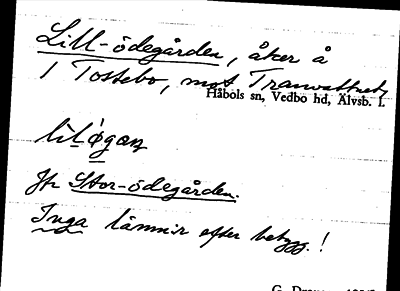 Lill-ödegården, åker å
1 Tossebo, mot Tranvattnet,
Håbols sn, Vedbo hd, Älvsb. l.
Jfr Stor-ödegården.
Inga lämnir efter bebygg.!